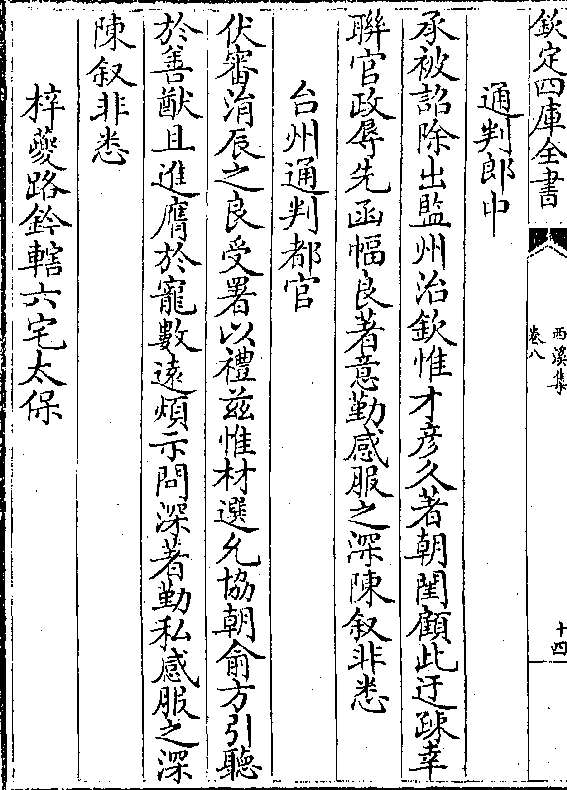 欽定四庫全書
西溪集
卷八
十四
通判郎中
承被詔除出監州治欽惟才彥久著朝閨顧此迂疎幸
聯官政辱先函幅良著意勤感服之深陳叙非悉
台州通判都官
伏審涓辰之良受署以禮兹惟材選允協朝俞方引聽
於善猷且進膺於寵數遠煩示問深著勤私感服之深
陳叙非悉
梓夔路鈐轄六宅太保